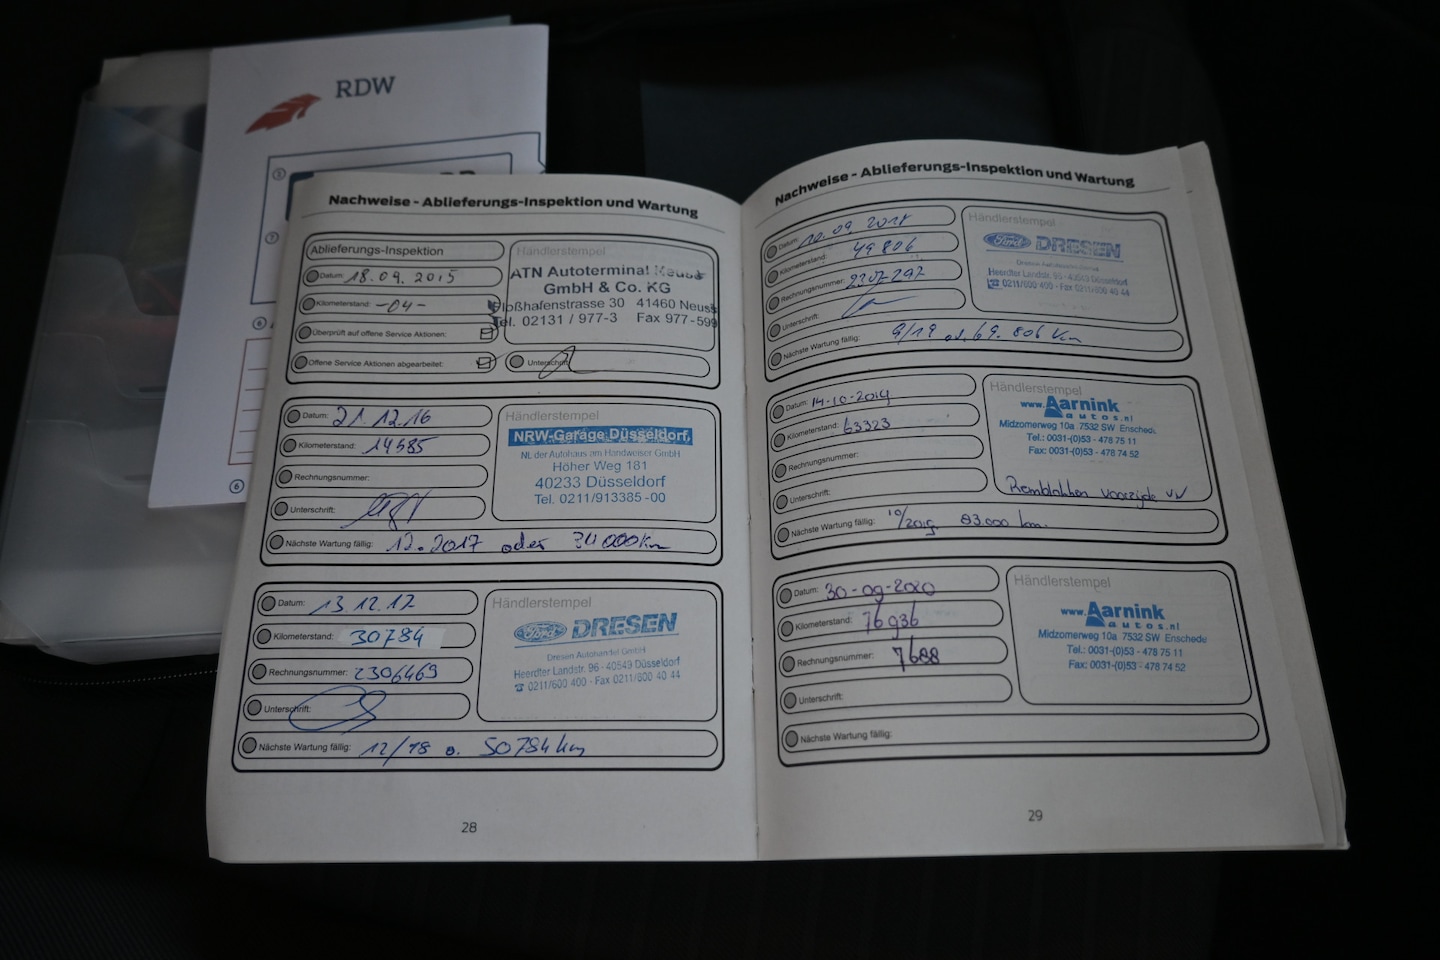 RDW
5
7
6
6
Nachweise - Ablieferungs-Inspektion und Wartung
Ablieferungs-Inspektion
Datum: 18.09.2015
Kilometerstand: -04-
Überprüft auf offene Service Aktionen:
Offene Service Aktionen abgearbeitet:
Händlerstempel
ATN Autoterminal Neuss
GmbH & Co. KG
Floßhafenstrasse 30 41460 Neuss
Tel. 02131 / 977-3 Fax 977-599
Unterschrift:
Datum: 21.12.16
Kilometerstand: 14585
Rechnungsnummer:
Unterschrift:
Nächste Wartung fällig: 12.2017 oder 34000km
Händlerstempel
NRW-Garage Düsseldorf,
NL der Autohaus am Handweiser GmbH
Höher Weg 181
40233 Düsseldorf
Tel. 0211/913385-00
Datum: 13.12.17
Kilometerstand: 30784
Rechnungsnummer: 2306469
Unterschrift:
Nächste Wartung fällig: 12/18 o. 50784km
Händlerstempel
Ford DRESEN
Dresen Autohandel GmbH
Heerdter Landstr. 96 - 40549 Düsseldorf
☎ 0211/600 400 - Fax 0211/600 40 44
28
Nachweise - Ablieferungs-Inspektion und Wartung
Datum: 10.09.2018
Kilometerstand: 49806
Rechnungsnummer: 2307297
Unterschrift:
Nächste Wartung fällig: 9/19 od. 69.806 km
Händlerstempel
Ford DRESEN
Dresen Autohandel GmbH
Heerdter Landstr. 96 - 40549 Düsseldorf
☎ 0211/600 400 - Fax 0211/600 40 44
Datum: 14-10-2019
Kilometerstand: 63323
Rechnungsnummer:
Unterschrift:
Nächste Wartung fällig: 83.000 km.
Händlerstempel
www.Aarnink
autos.nl
Midzomerweg 10a 7532 SW Enschede
Tel.: 0031-(0)53 - 478 75 11
Fax: 0031-(0)53 - 478 74 52
Remblokken voorzijde vv
Datum: 30-09-2020
Kilometerstand: 76936
Rechnungsnummer: 7688
Unterschrift:
Nächste Wartung fällig:
Händlerstempel
www.Aarnink
autos.nl
Midzomerweg 10a 7532 SW Enschede
Tel.: 0031-(0)53 - 478 75 11
Fax: 0031-(0)53 - 478 74 52
29